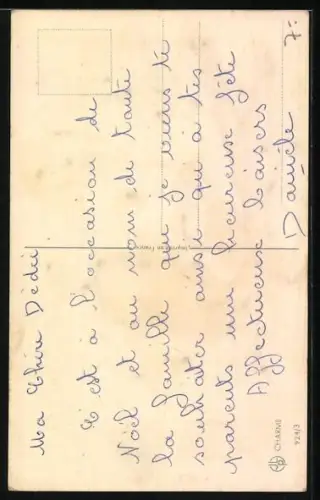 Ma Chère Dédé
C'est à l'occasion de
Noël et au nom de toute
la famille que je viens te
souhaiter ainsi qu'à tes
parents une heureuse fête
Affectueux baisers
Danièle
7=
CHARME
924/3